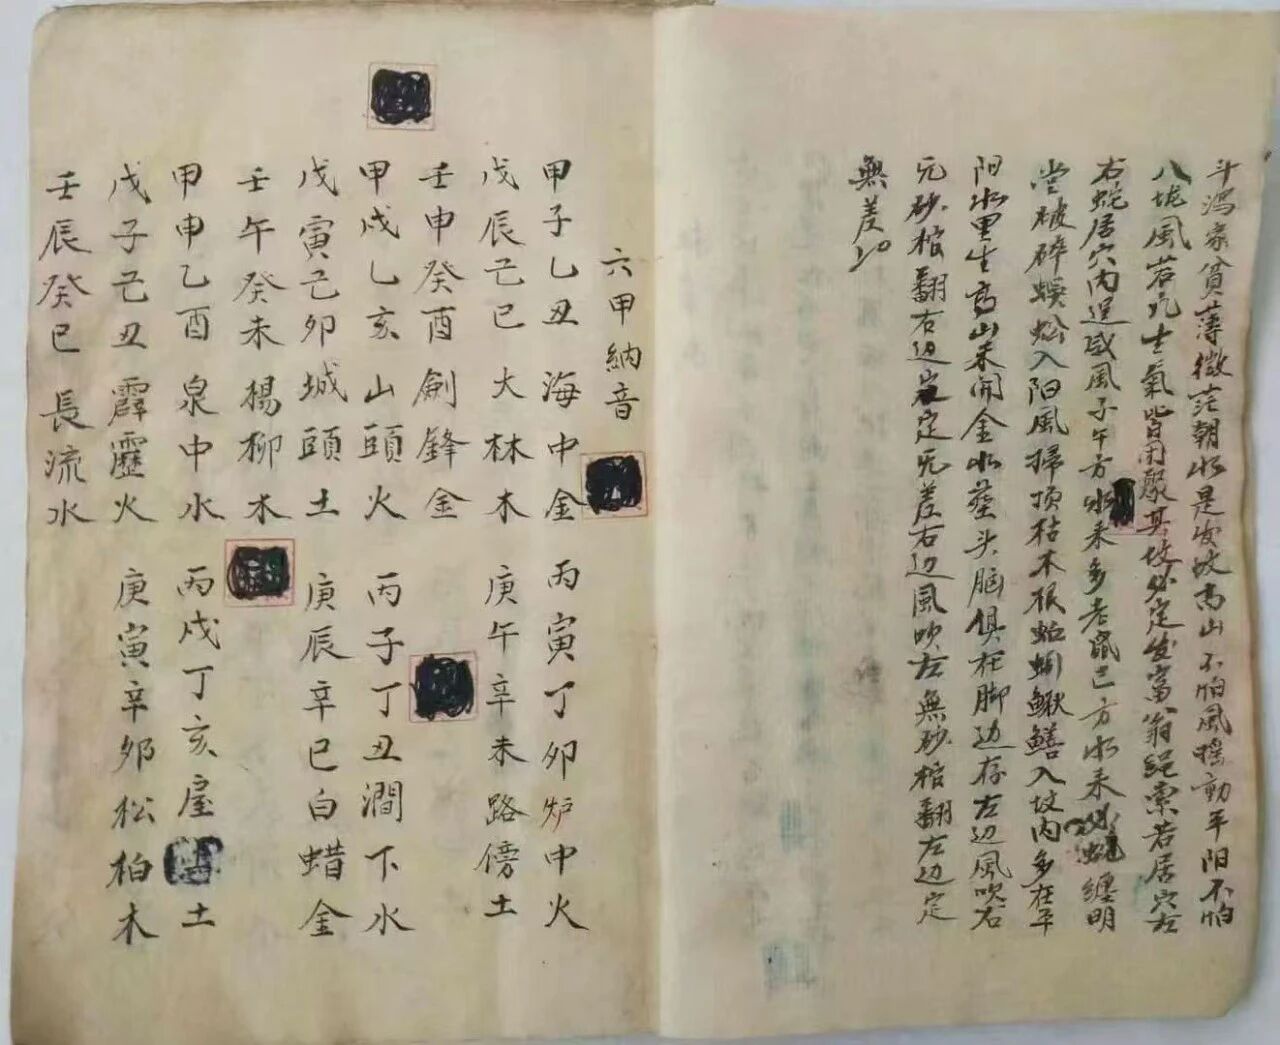 斗瀉家貧薄微茫朝水是发坟高山不怕風摇動平阳不怕
八坭風若凢士氣皆用聚其坟必定发富翁绳索若居穴左
右蛇居穴内逞威風子午方水来多老鼠己方水来蛇纏明
堂破碎蜈蚣入阳風掃顶枯木根蚯蚓鳅鱔入坟内多在平
阳水里生高山来開金水莝头脑俱在脚边存左边風吹右
无砂棺翻右边定无差右边風吹左無砂棺翻左边定
無差
六甲納音
甲子乙丑海中金 丙寅丁卯炉中火
戊辰己巳大林木 庚午辛未路傍土
壬申癸酉劍鋒金
甲戍乙亥山頭火 丙子丁丑澗下水
戊寅己卯城頭土 庚辰辛巳白蜡金
壬午癸未楊柳木
甲申乙酉泉中水 丙戍丁亥屋土
戊子己丑霹靂火 庚寅辛夘松柏木
壬辰癸巳長流水